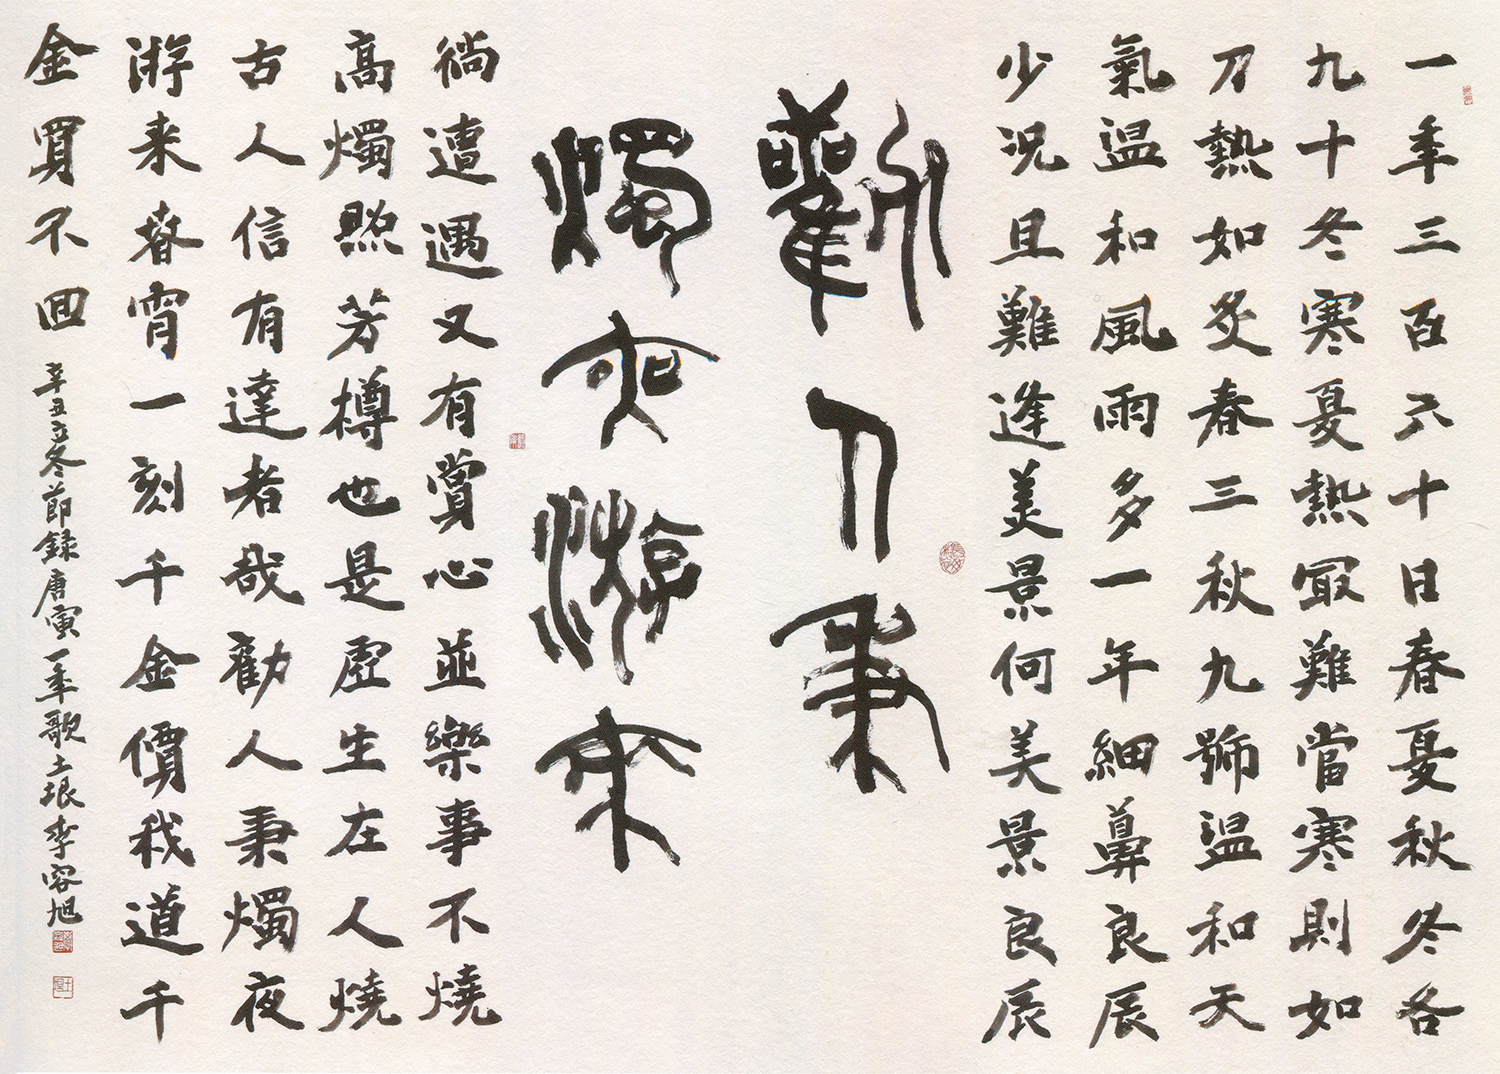 一秊三百六十日春夏秋冬各
九十冬寒夏熱冣難當寒則如
刀熱如炙春三秋九號溫和天
氣溫和風雨多一年細算良辰
少況且難逢美景何美景良辰
勸人秉
燭夜游來
徜遭遇又有賞心並樂事不燒
高燭照芳樽也是虛生在人燒
古人信有達者哉勸人秉燭夜
游来春宵一刻千金價我道千
金買不回
辛丑立冬節録唐寅一秊歌土垠李容旭